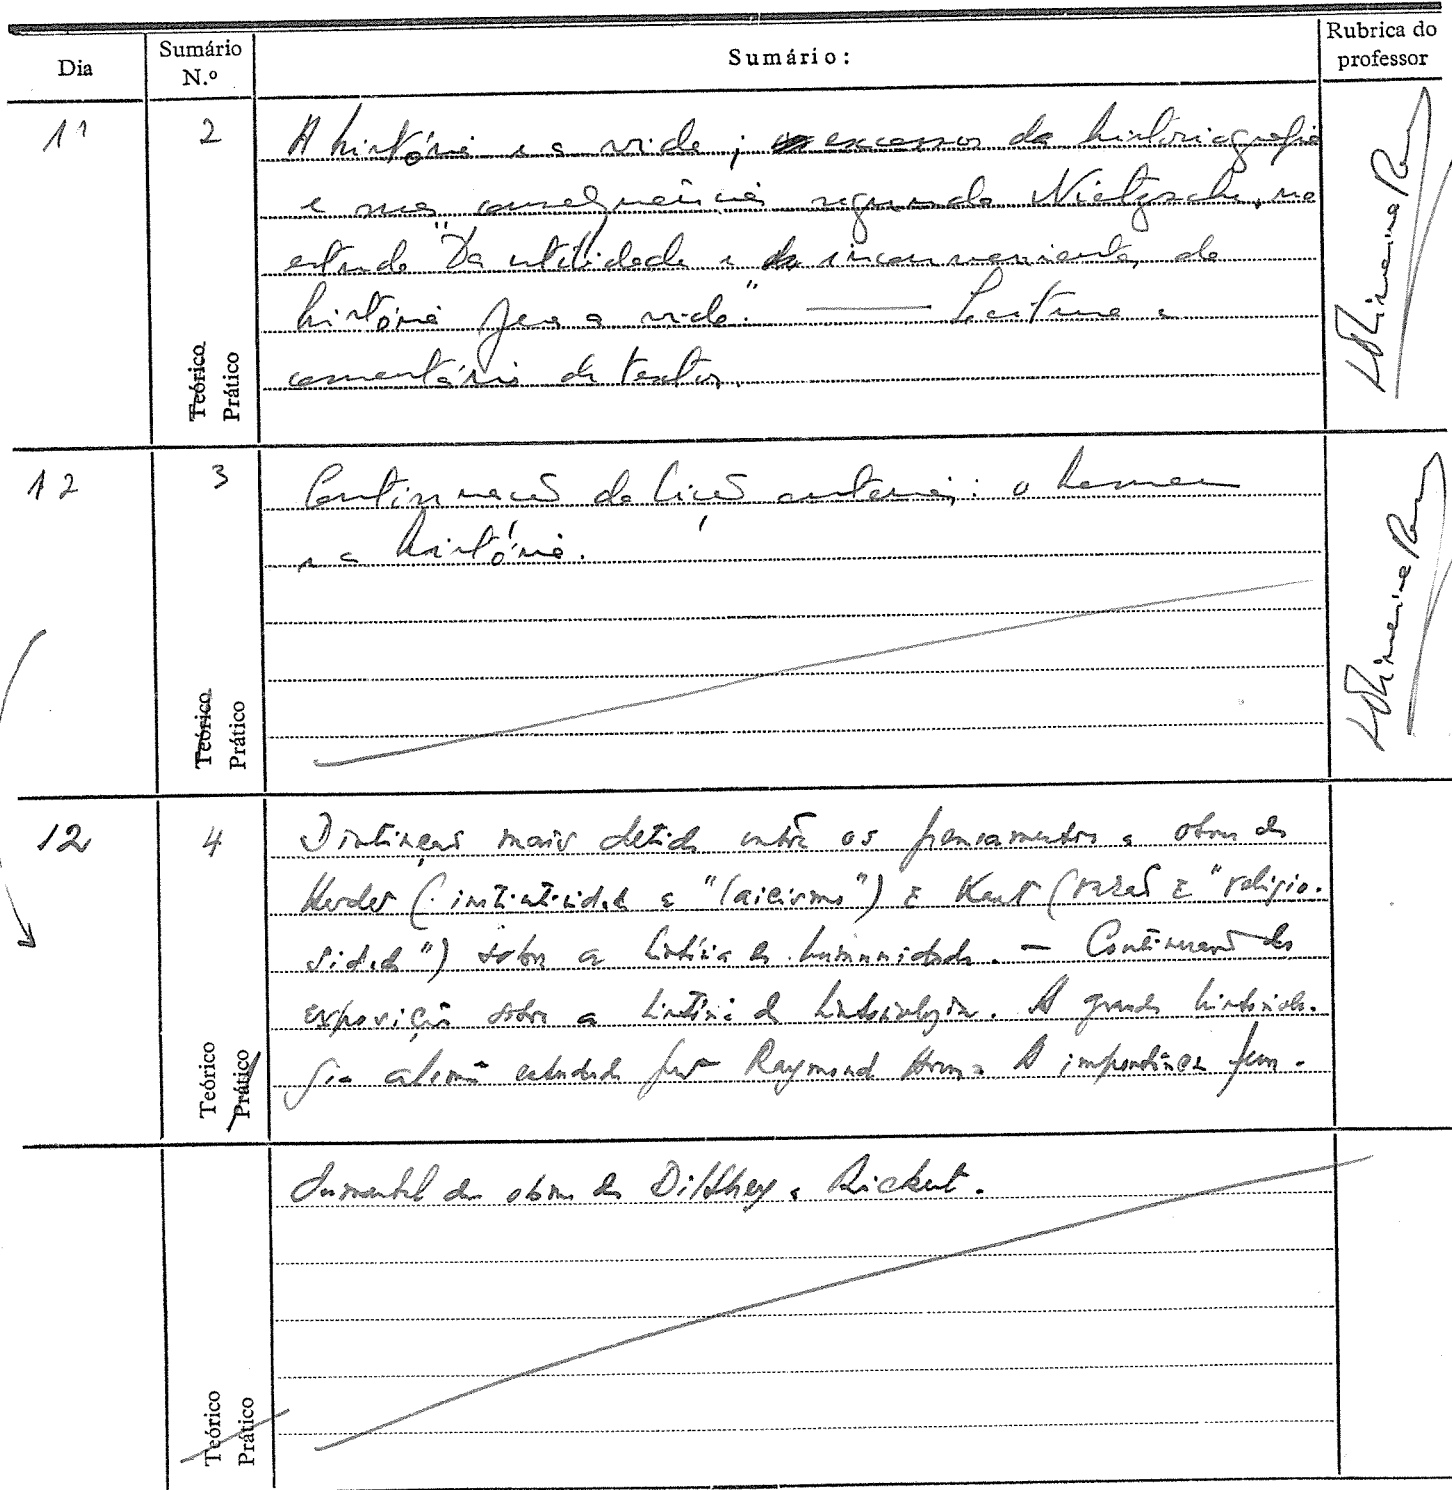 Dia
Sumário N.º
Sumário:
Rubrica do professor
11
2
A história e a vida; excessos da historiografia
e suas consequências segundo Nietzsche, no
estudo "Da utilidade e inconvenientes da
história para a vida." — Leitura e
comentário de textos.
Teórico
Prático
12
3
Continuação da lição anterior: o homem
e a história.
Teórico
Prático
12
4
Distinção mais detida entre os pensamentos e obras de
Herder ( e "laicismo") e Kant (razão e "religio-
sidade") sobre a história da humanidade. — Continuação da
exposição sobre a história da historiologia. A grande historiolo-
gia alemã estudada por Raymond Aron. A importância fun-
Teórico
Prático
damental das obras de Dilthey e Rickert.
Teórico
Prático